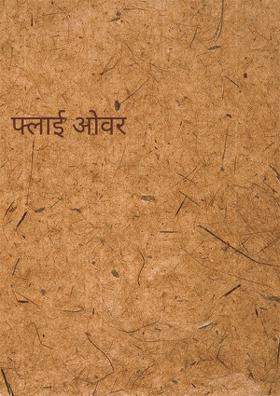 फ्लाई ओवर